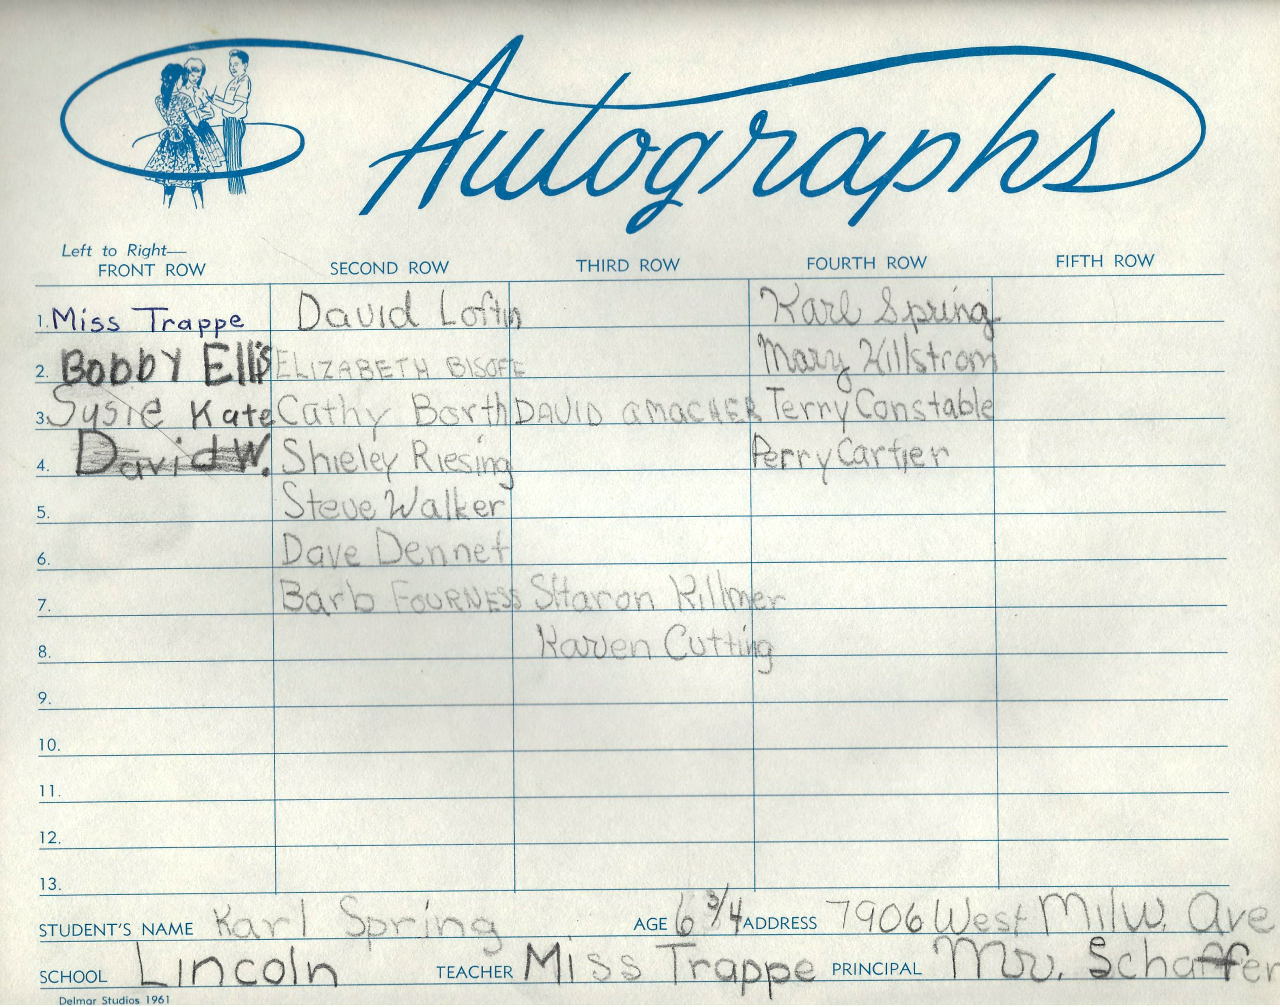 Autographs
Left to Right—
FRONT ROW SECOND ROW THIRD ROW FOURTH ROW FIFTH ROW
1. Miss Trappe David Loftin Karl Spring
2. Bobby Ellis ELIZABETH BISOFE Mary Hillstrom
3. Susie Kate Cathy Borth DAVID AMACHER Terry Constable
4. David W. Shieley Riesing Perry Cartier
5. Steve Walker
6. Dave Dennet
7. Barb FOURNESS SHaron Killmer
8. Karen Cutting
9.
10.
11.
12.
13.
STUDENT'S NAME Karl Spring AGE 6 3/4 ADDRESS 7906 West Milw. Ave
SCHOOL Lincoln TEACHER Miss Trappe PRINCIPAL Mr. Schaffer
Delmar Studios 1961